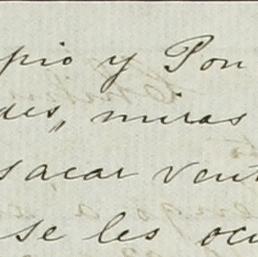 pio y Pon
des, miras
sacar vent
se les ocu